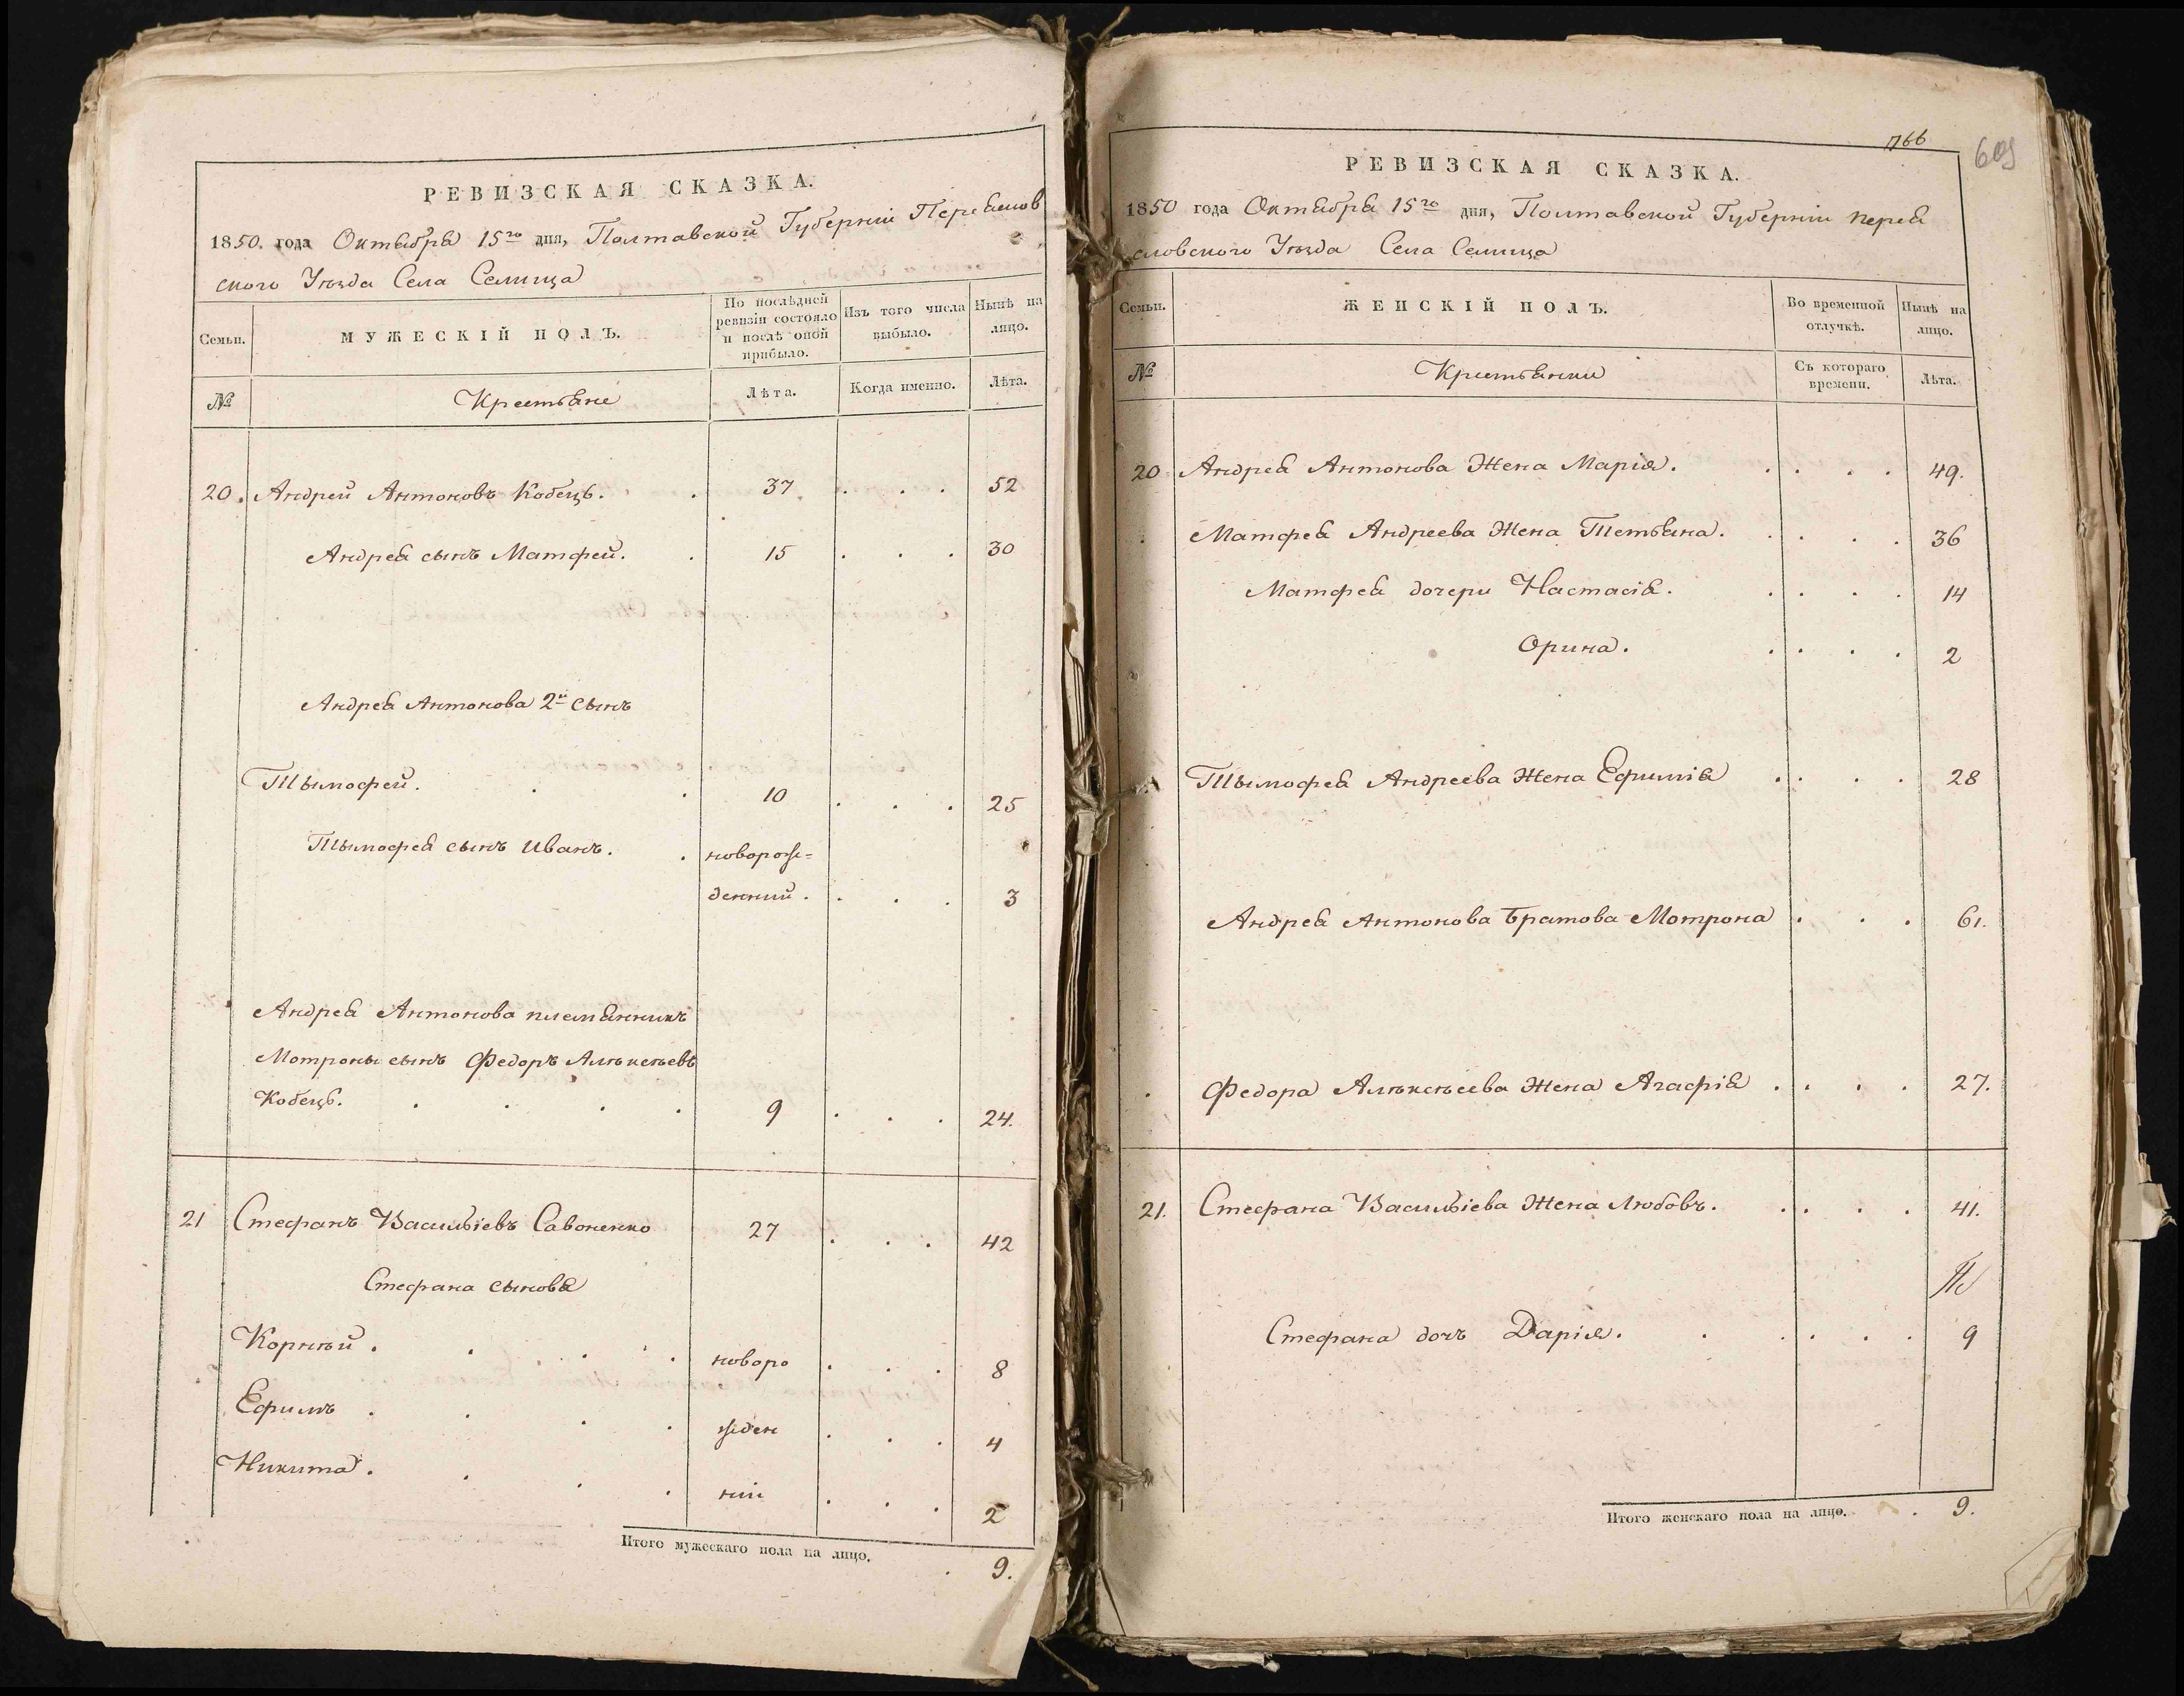 РЕВИЗСКАЯ СКАЗКА.
1850. года Октября 15го дня, Полтавской Губерніи Переяслов
ского Уѣзда Села Селища
Семьи.
МУЖЕСКІЙ ПОЛЪ.
По послѣдней ревизіи состояло и послѣ оной прибыло.
Изъ того числа выбыло.
Нынѣ на лицо.
№
Крестьяне
Лѣта.
Когда именно.
Лѣта.
20. Андрей Антоновъ Кобець. 37 52
Андрея сынъ Матфей. 15 30
Андрея Антонова 2й сынъ
Тымофей. 10 25
Тымофея сынъ Иванъ. новорож=
денний. 3
Андрея Антонова племянникъ
Мотроны сынъ Федоръ Алѣксѣевъ
Кобець. 9 24.
21 Стефанъ Васильіевъ Савоненко 27 42
Стефана сыновя
Корнѣй. новоро 8
Ефимъ. жден 4
Никита. нии 2
Итого мужескаго пола на лицо. 9.
766
609
РЕВИЗСКАЯ СКАЗКА.
1850 года Октября 15го дня, Полтавской Губерніи Перея
словского Уѣзда Села Селища
Семьи.
ЖЕНСКІЙ ПОЛЪ.
Во временной отлучкѣ.
Нынѣ на лицо.
№
Крестьянки
Съ котораго времени.
Лѣта.
20 Андрея Антонова Жена Марія. 49.
Матфея Андреева Жена Тетьяна. 36
Матфея дочери Настасія. 14
Орина. 2
Тымофея Андреева Жена Ефимія 28
Андрея Антонова Братова Мотрона 61.
Федора Алѣксѣеева Жена Агафія 27.
21. Стефана Васильіева Жена Любовъ. 41.
Стефана дочъ Дарія. 9
Итого женскаго пола на лицо. 9.